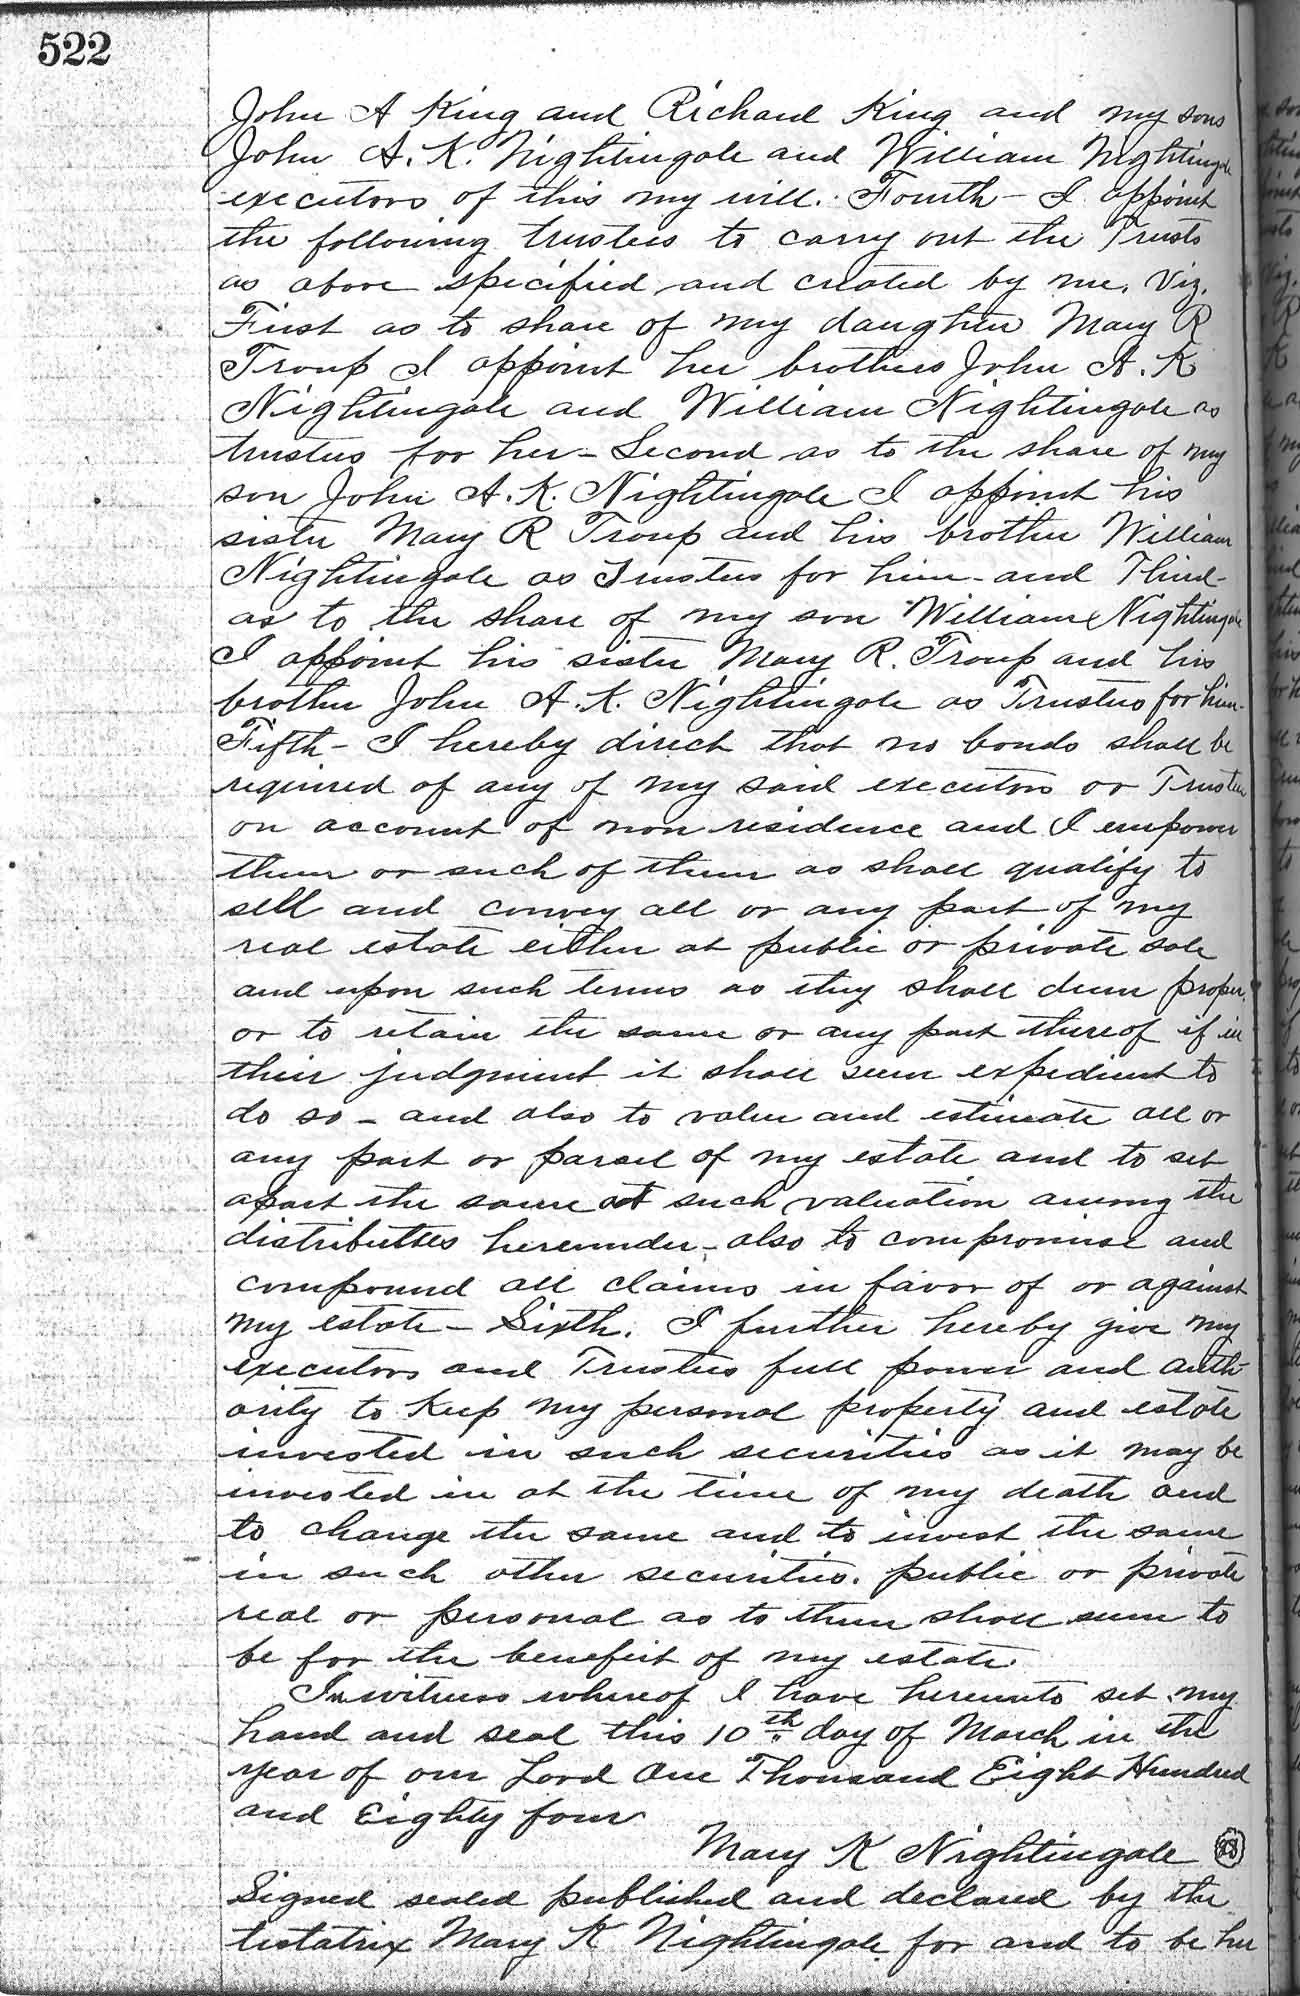 522
John A King and Richard King and my sons
John A. K. Nightingale and William Nightingale
executors of this my will. Fourth - I appoint
the following trustees to carry out the Trusts
as above specified and created by me. Viz.
First as to share of my daughter Mary R
Troup I appoint her brothers John A. K
Nightingale and William Nightingale as
trustees for her - Second as to the share of my
son John A. K. Nightingale I appoint his
sister Mary R Troup and his brother William
Nightingale as Trustees for him - and Third -
as to the share of my son William Nightingale
I appoint his sister Mary R. Troup and his
brother John A. K. Nightingale as Trustees for him -
Fifth - I hereby direct that no bonds shall be
required of any of my said executors or Trustees
on account of non residence and I empower
them or such of them as shall qualify to
sell and convey all or any part of my
real estate either at public or private sale
and upon such terms as they shall deem proper.
or to retain the same or any part thereof if in
their judgment it shall seem expedient to
do so - and also to value and estimate all or
any part or parcel of my estate and to set
apart the same at such valuation among the
distributees hereunder - also to compromise and
compound all claims in favor of or against
my estate - Sixth. I further hereby give my
executors and Trustees full power and auth-
ority to Keep my personal property and estate
invested in such securities as it may be
invested in at the time of my death and
to change the same and to invest the same
in such other securities. public or private
real or personal as to them shall seem to
be for the benefit of my estate.
In witness whereof I have hereunto set my
hand and seal this 10th day of March in the
year of our Lord One Thousand Eight Hundred
and Eighty four
Mary K Nightingale
Signed sealed published and declared by the
testatrix Mary K Nightingale for and to be her